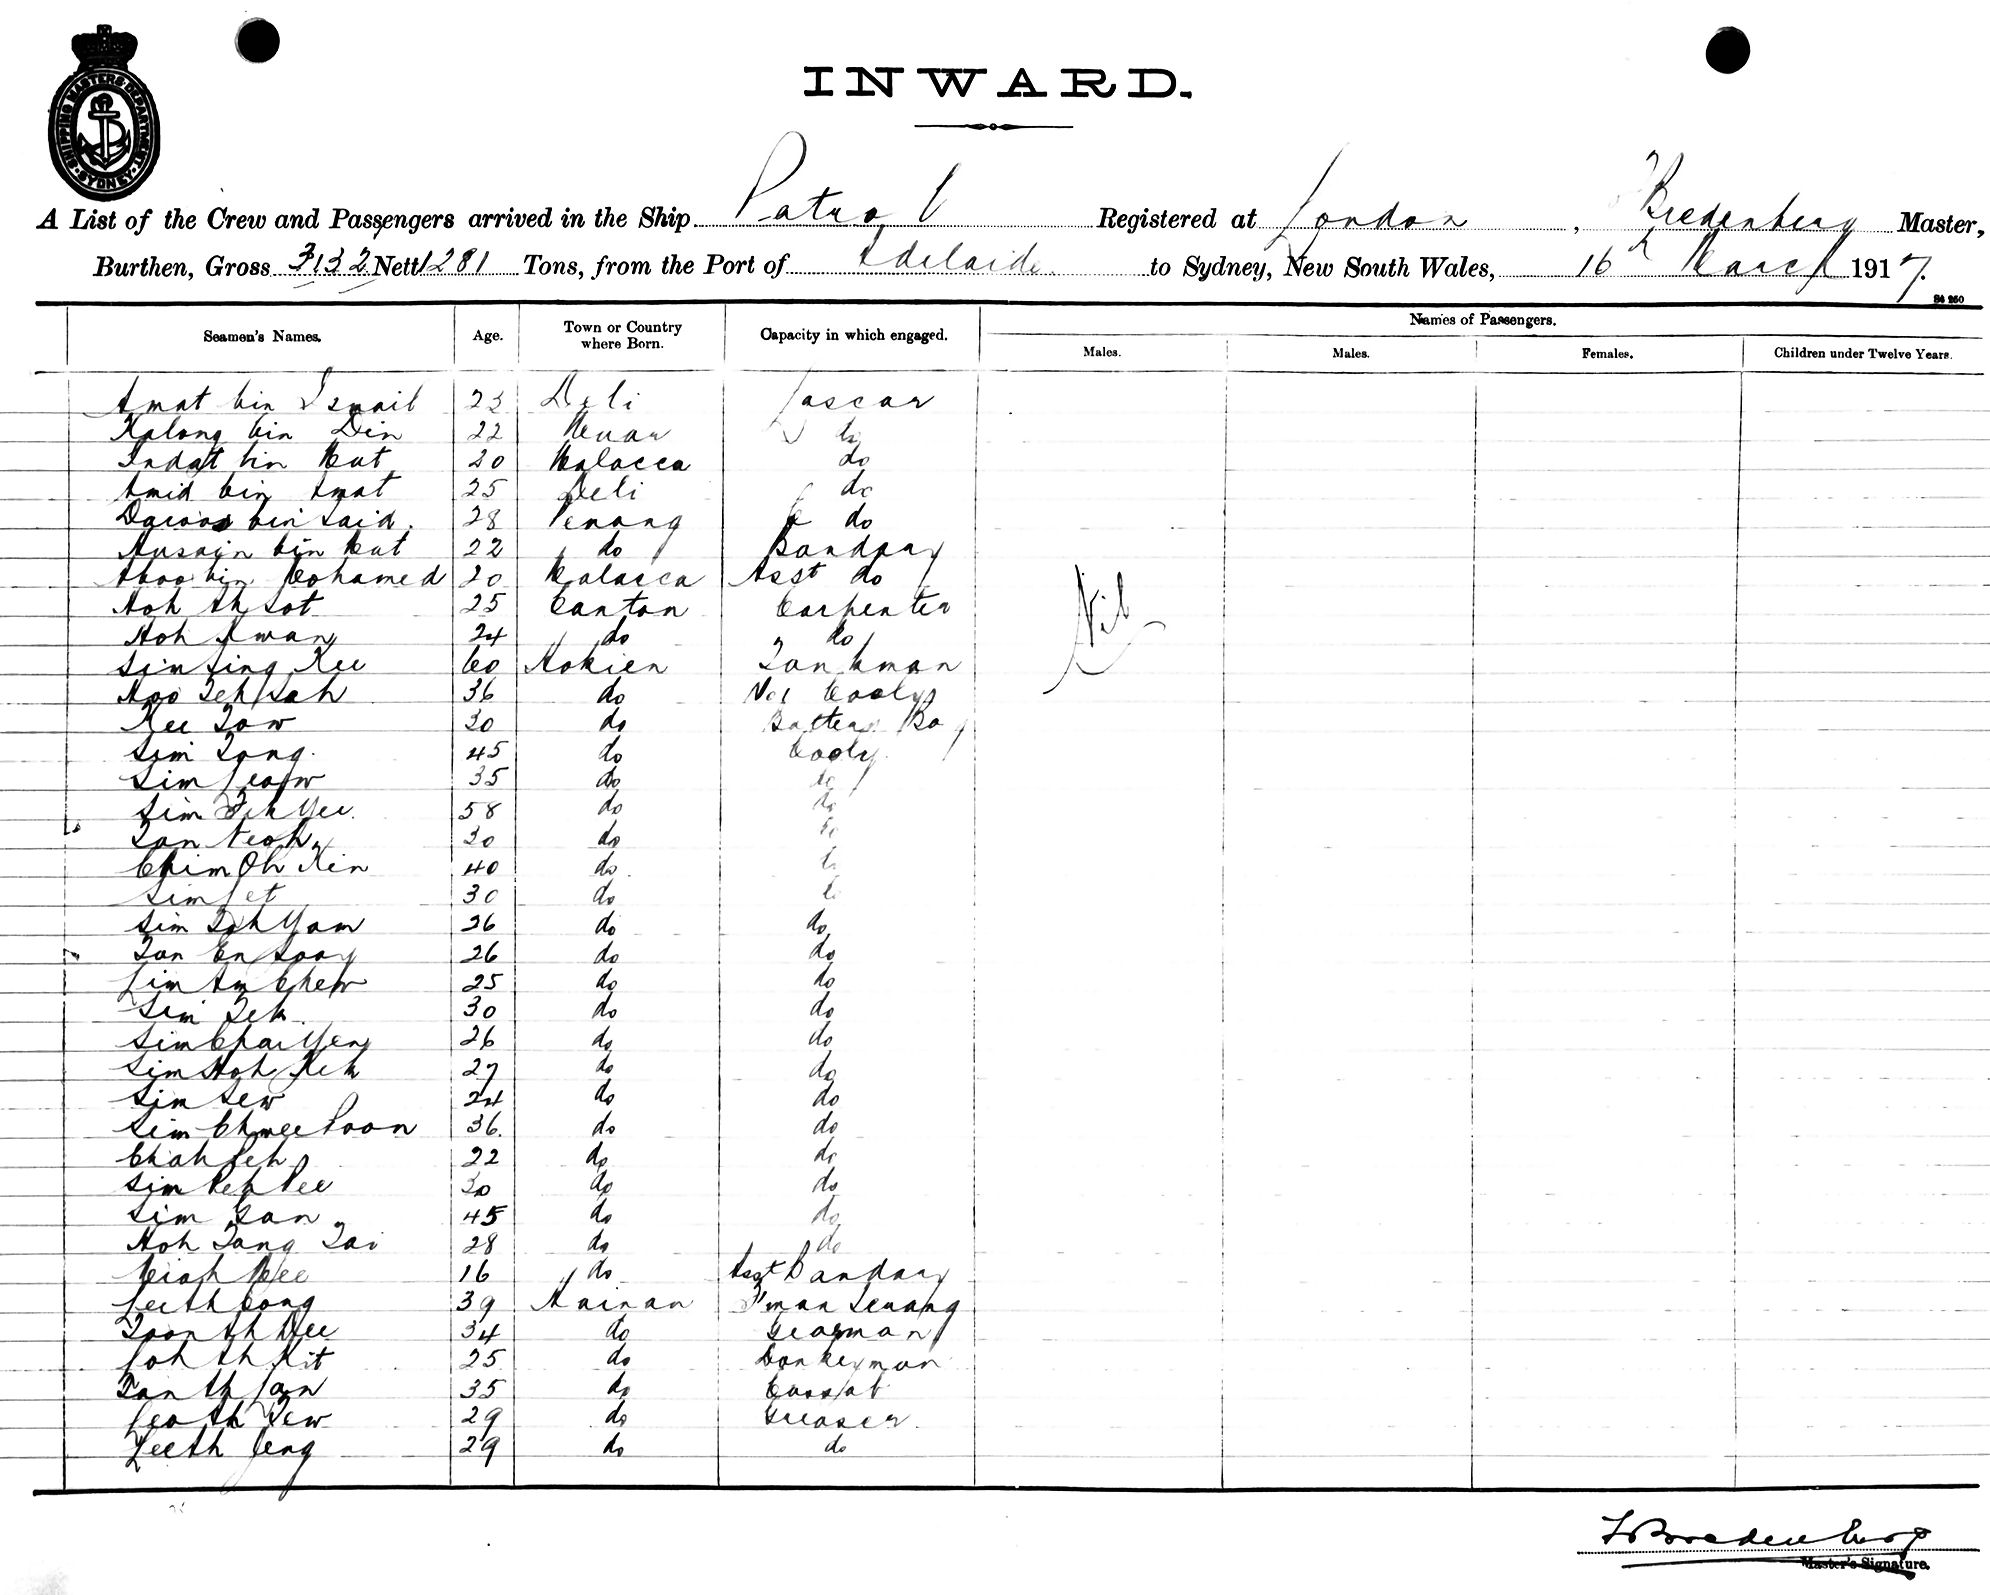 SHIPPING MASTERS DEPARTMENT
SYDNEY
INWARD.
A List of the Crew and Passengers arrived in the Ship Patro Registered at London, Bredenberg Master,
Burthen, Gross 3132 Nett 1281 Tons, from the Port of Adelaide to Sydney, New South Wales, 16th March 1917.
S4 250
Seamen's Names. Age. Town or Country where Born. Capacity in which engaged. Names of Passengers.
Males. Males. Females. Children under Twelve Years.
Amat bin Ismail 23 Deli Lascar
Kalong bin Din 22 Muar do
Indat bin Mat 20 Malacca do
Amid bin Amat 25 Deli do
bin Said 28 Penang do
Hussain bin Mat 22 do Bandary
Aboo bin Mohamed 20 Malacca Asst do
Hoh Ah Sot 25 Canton Carpenter
Hoh Kwang 24 do do
Sim Sing Kee 60 Hokien Tankman
Hoo Teh Sah 36 do No1 Cooly
Kee Tow 30 do Battery Boy
Sim Tong 45 do Cooly
Sim 35 do do
Sim Teh Yee 58 do do
Tan 30 do do
Chim Oh Kin 40 do do
Sim Let 30 do do
Sim Toh Yam 26 do do
Tan En Soay 26 do do
Lim Am Chew 25 do do
Sim Teh 30 do do
Sim Chai Yeng 26 do do
Sim Hoh Keh 27 do do
Sim Sew 24 do do
Sim Chwee Poon 36 do do
Chah Peh 22 do do
Sim Peh Pee 30 do do
Sim Gan 45 do do
Hoh Tang Tai 28 do do
Mee 16 do Asst Bandary
Lee Ah Cong 39 Hainan F'man Serang
Toon Ah Hee 34 do Gearman
Loh Ah Kit 25 do Donkeyman
Tan Ah Jan 35 do Cassab
Leo Ah Tew 29 do Greaser
Lee Ah Jeng 29 do do
Nil
Bredenberg
Master's Signature.